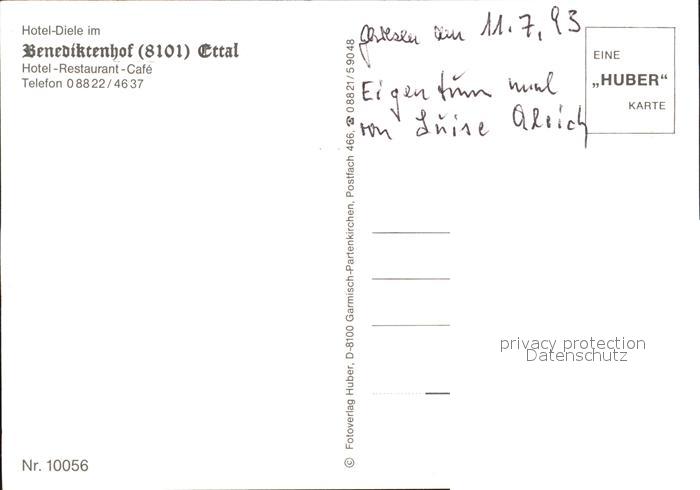 Hotel-Diele im
Benediktenhof (8101) Ettal
Hotel-Restaurant-Café
Telefon 0 88 22 / 46 37
Nr. 10056
© Fotoverlag Huber, D-8100 Garmisch-Partenkirchen, Postfach 466, ☎ 08821/59048
11.7.93
Eigentum
von Luise
EINE
„HUBER“
KARTE
privacy protection
Datenschutz